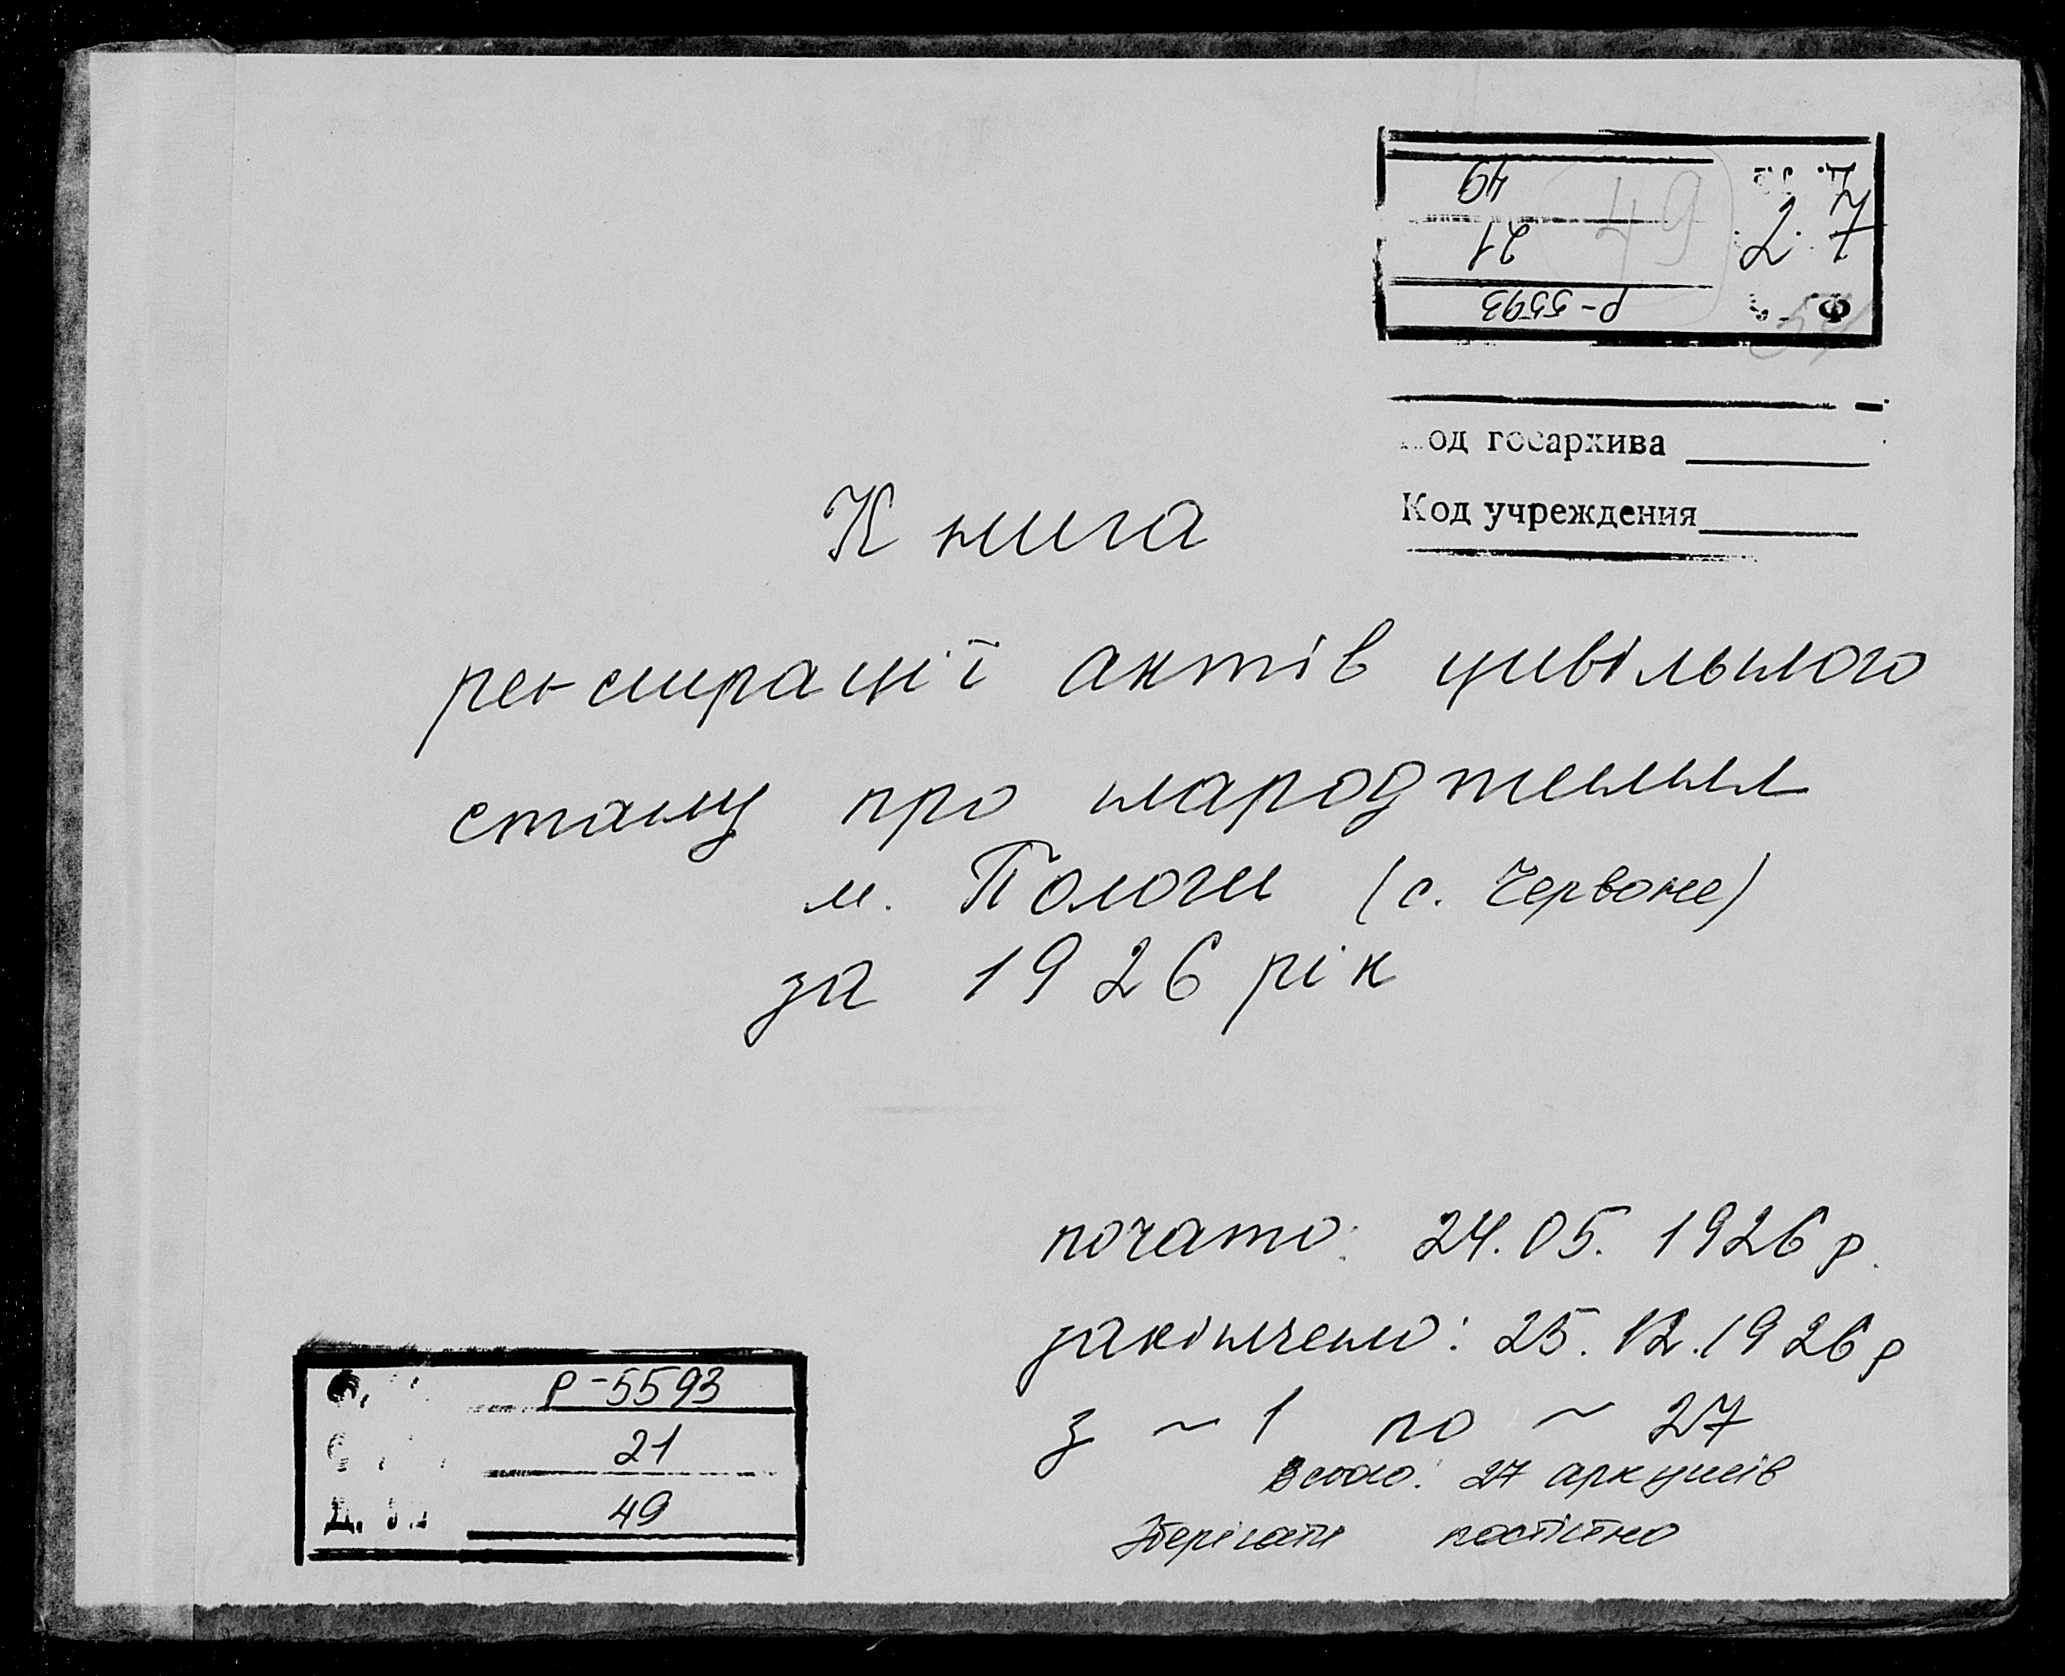 Д. №
49
49
2 7
21
Ф. №
Р-5593
Код госархива
Код учреждения
Книга
реєстрації актів цивільного
стану про народження
м. Пологи (с. Червоне)
за 1926 рік
почато: 24.05.1926 р.
закінчено: 25.12.1926 р
з ~ 1 по ~ 27
Всього: 27 аркушів
Зберігати постійно
Ф. Р-5593
21
Д. № 49